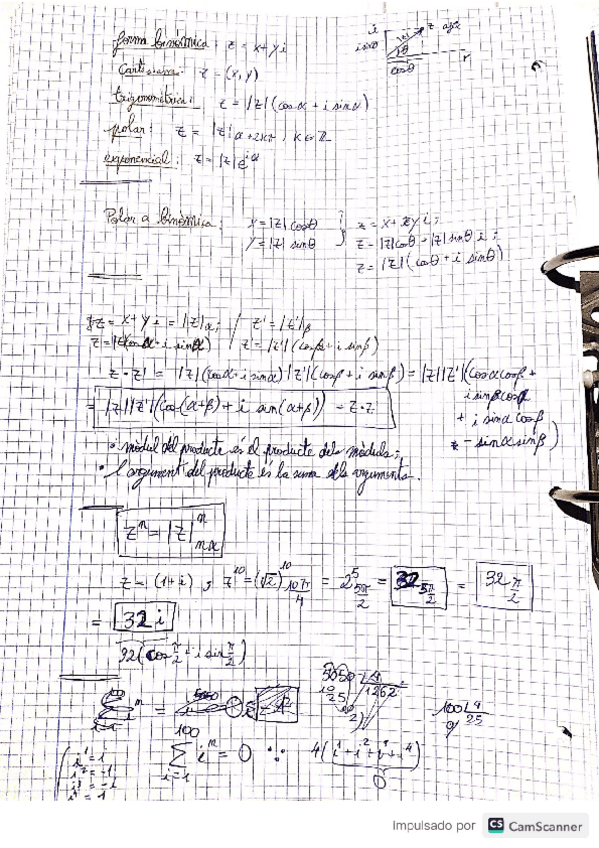 forma binòmica: z = x + y i
Cartesiana: z = (x, y)
trigonomètrica: z = |z| (cos α + i sin α)
polar: z = |z| α + 2kπ, k ∈ ℤ
exponencial: z = |z| e^{iα}
Polar a binòmica: x = |z| cos θ
y = |z| sin θ
z = |z| (cos θ + i sin θ)
z = x + y i = |z|_α; / z' = |z'|_β
z' = |z'| (cos β + i sin β)
z · z' = |z| (cos α + i sin α) |z'| (cos β + i sin β) = |z||z'| (cos α cos β +
+ i sin α cos β
- sin α sin β)
= |z||z'| (cos(α+β) + i sin(α+β)) = z · z'
• mòdul del producte és el producte dels mòduls;
• l'argument del producte és la suma dels arguments.
z^n = |z|^n_{nα}
z = (1+i) ; z^10 = (√2)^10_{10π/4} = 2^5_{5π/2} = 32_{5π/2} = 32_{π/2}
= 32 i
32 (cos π/2 + i sin π/2)
5050 | 4
1262
100 | 4
0 25
∑_{i=1}^{100} i^n = 0 ∵ 4 (i^1 + i^2 + i^3 + i^4)
0
i^1 = i
i^2 = -1
i^3 = -i
i^4 = 1
Impulsado por CS CamScanner